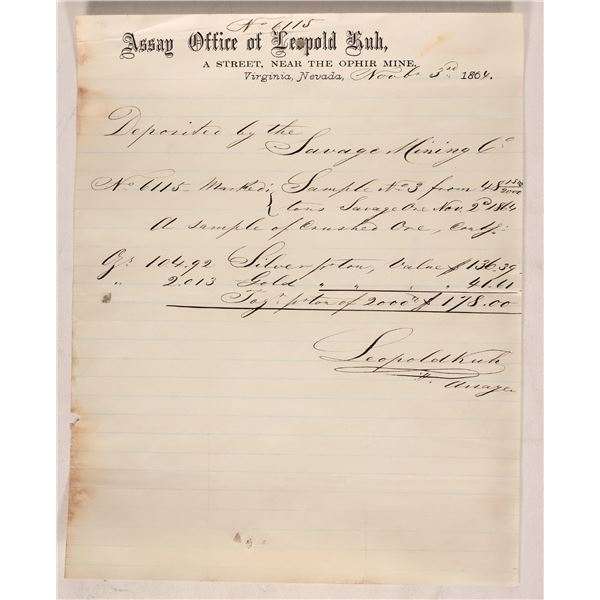 No 6115
Assay Office of Leopold Kuh,
A STREET, NEAR THE OPHIR MINE,
Virginia, Nevada, Novbr 3rd 1864.
Deposited by the
Savage Mining Co
No 6115 Marked: Sample No 3 from 48 1500/2000
tons Savage Ore Nov. 2d 1864
A sample of Crushed Ore, contg:
Ozs 104.92 Silver pr ton, Value $ 136.39
" 2.013 Gold " " , " 41.61
Togr pr ton of 2000 lb $ 178.00
Leopold Kuh
Assayer